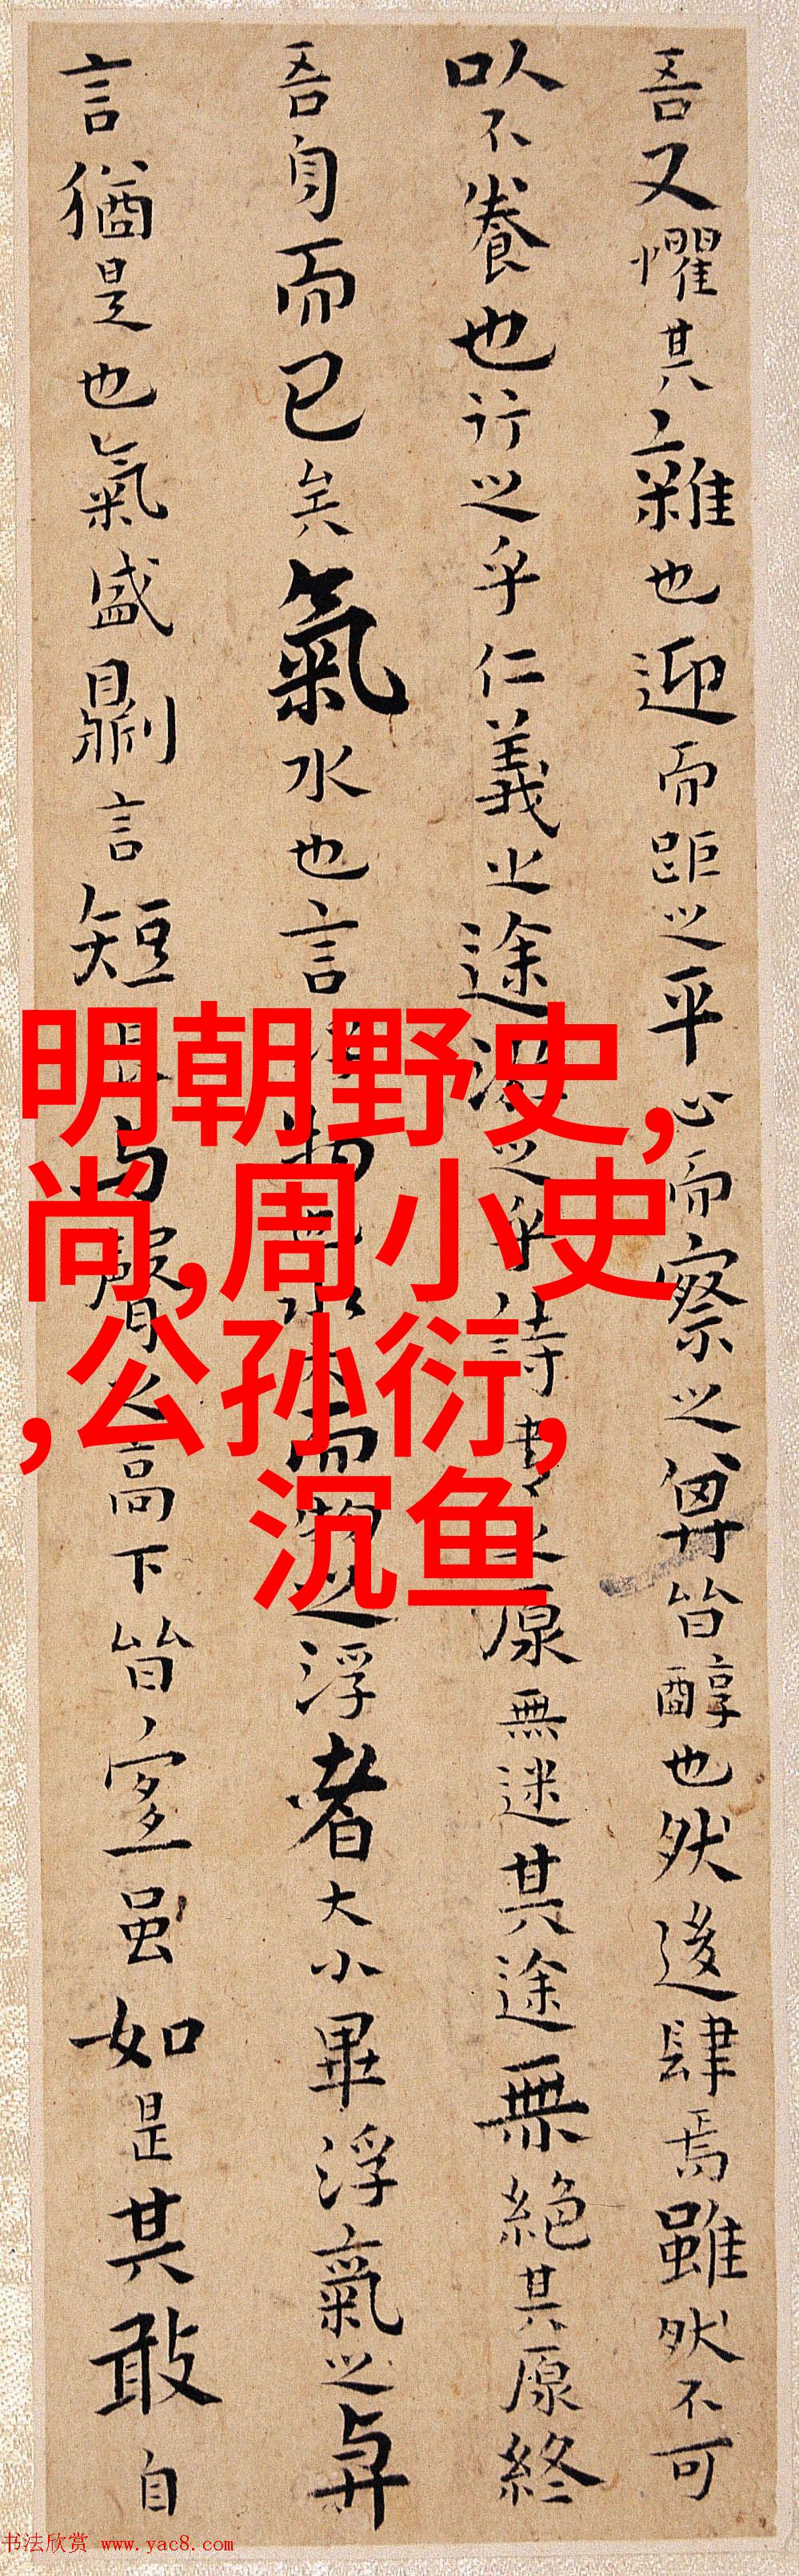 吾又懼其雜也迎而距之平心而察之其皆醇也然後肆焉雖然不可
以不養也行之乎仁義之途游之乎詩書之原無迷其途無絕其原終
吾身而已矣氣水也言浮物也水大而物之浮者大小畢浮氣之與
言猶是也氣盛則言短長與聲之高下皆宜虽如是其敢自
明朝野史,
尚,周小史
,公孙衍,
沉鱼
书法欣赏 www.yac8.com